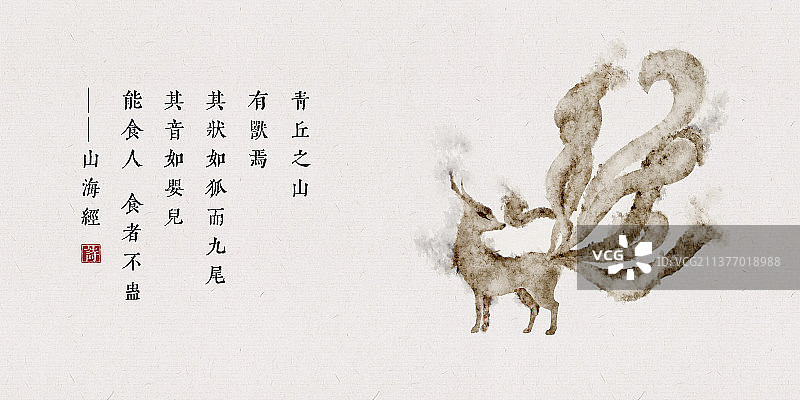 青丘之山
有獸焉
其狀如狐而九尾
其音如嬰兒
能食人 食者不蛊
——山海經
VCG
ID:VCG211377018988